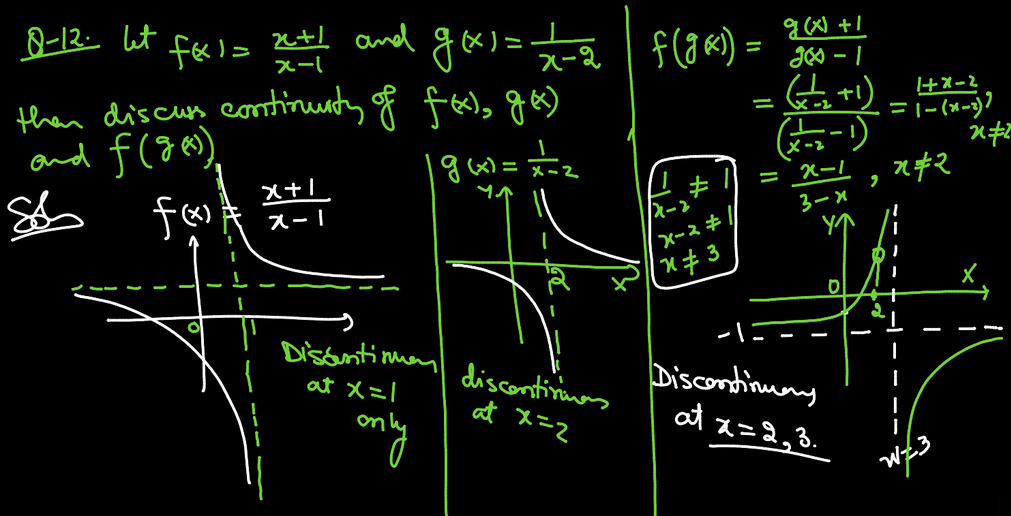 Q-12. let f(x) = x+1/x-1 and g(x) = 1/x-2
then discuss continuity of f(x), g(x)
and f(g(x))
Sol
f(x) = x+1/x-1
0
Discontinuous
at x=1
only
g(x) = 1/x-2
Y
2
X
discontinuous
at x=2
f(g(x)) = g(x)+1/g(x)-1
= (1/x-2 +1)/(1/x-2 -1) = 1+x-2/1-(x-2), x≠2
= x-1/3-x, x≠2
1/x-2 ≠ 1
x-2≠1
x≠3
Y
0
2
X
-1
x=3
Discontinuous
at x=2,3.